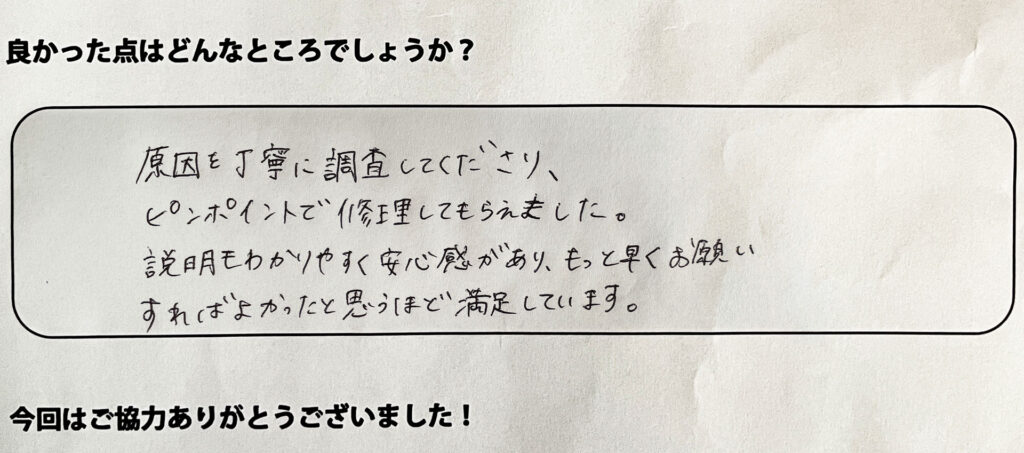 良かった点はどんなところでしょうか？
原因を丁寧に調査してくださり、
ピンポイントで修理してもらえました。
説明もわかりやすく安心感があり、もっと早くお願い
すればよかったと思うほど満足しています。
今回はご協力ありがとうございました！